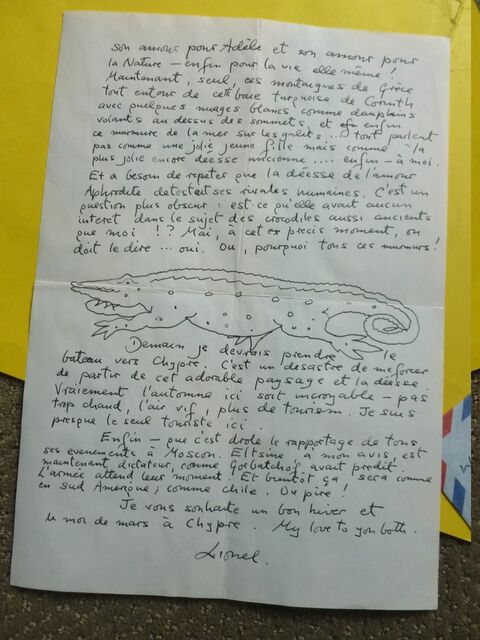 son amour pour Adèle et son amour pour
la Nature — enfin pour la vie elle même!
Maintenant, seul, ces montaignes de Grèce
tout entour de cette baie turquoise de Corinth
avec quelques nuages blancs comme dauphins
volants au dessus des sommets, et enfin
ce murmure de la mer sur les galets ... tout parlent
pas comme une jolie jeune fille mais comme - la
plus jolie encore déesse ancienne .... enfin - à moi.
Et a besoin de repeter que la déesse de l'amour
Aphrodite detestait ses rivales humaines. C'est un
question plus obscur: est-ce qu'elle avait aucun
interet dans le sujet des crocodiles aussi ancients
que moi !? Mai, à cet precis moment, on
doit le dire ... oui. Ou, pourquoi tous ces murmurs!
Demain je devrais prendre le
bateau vers Chypre. C'est un desastre de me forcer
de partir de cet adorable paysage et la déesse.
Vraiement l'automne ici soit incroyable - pas
trop chaud, l'air vif, plus de tourism. Je suis
presque le seul touriste ici.
Enfin - que c'est drole le rapportage de tous
ses evenements à Moscou. Eltsine, à mon avis, est
maintenant dictateur, comme Gorbatchof avait predit.
L'armée attend leur moment. Et bientôt ça sera comme
en sud Amerique; comme Chile. Ou pire!
Je vous souhaite un bon hiver et
le moi de mars à Chypre. My love to you both.
Lionel.